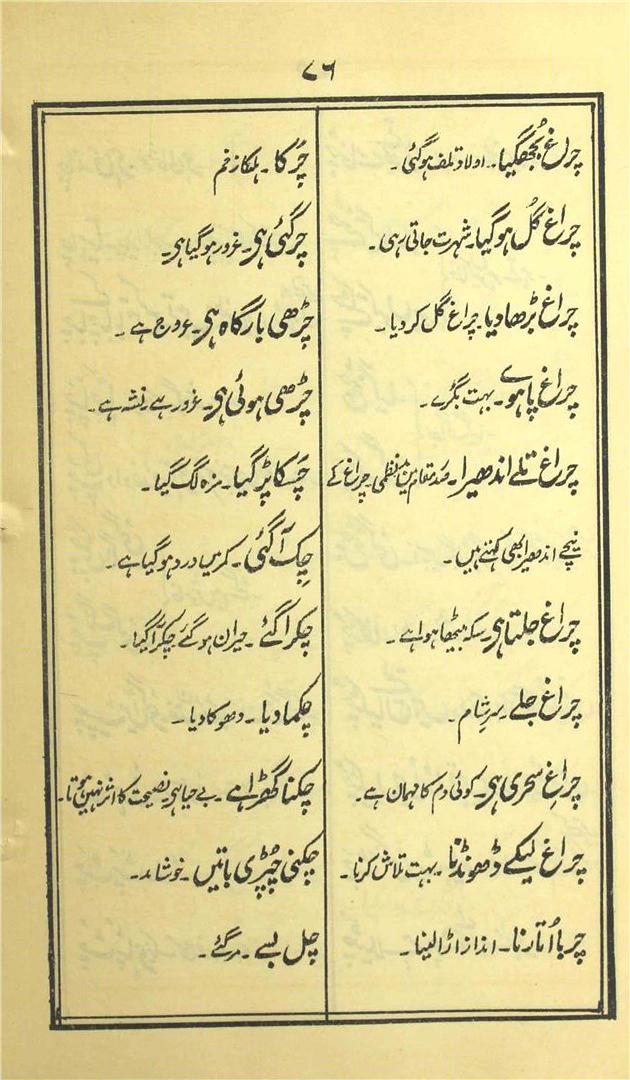 ۸۶
چراغ بُجھ گیا۔ اولاد تلف ہوگئی۔
چراغ گُل ہوگیا۔ شہرت جاتی رہی۔
چراغ بڑھا دیا۔ چراغ گل کر دیا۔
چراغ پا ہوے۔ بہت بگڑے۔
چراغ تلے اندھیرا۔ صدر مقام میں بدنظمی۔ چراغ کے
نیچے اندھیرا بھی کہتے ہیں۔
چراغ جلتا ہی۔ سکہ بیٹھا ہوا ہے۔
چراغ جلے۔ سرِشام۔
چراغِ سحری ہی۔ کوئی دم کا مہمان ہے۔
چراغ لیکے ڈھونڈنا۔ بہت تلاش کرنا۔
چربا اُتارنا۔ انداز اڑا لینا۔
چَرکا۔ ہلکا زخم
چرگئی ہی۔ غرور ہوگیا ہی۔
چڑھی بارگاہ ہی۔ عروج ہے۔
چڑھی ہوئی ہی۔ غرور ہے۔ نشہ ہے۔
چَسکا پڑ گیا۔ مزہ لگ گیا۔
چِک آگئی۔ کمر میں درد ہوگیا ہے۔
چکرا گئے۔ حیران ہوگئے چکر آگیا۔
چکما دیا۔ دھوکا دیا۔
چکنا گھڑا ہے۔ بے حیا ہی۔ نصیحت کا اثر نہیں ہوتا۔
چکنی چُپڑی باتیں۔ خوشامد۔
چل بسے۔ مرگئے۔